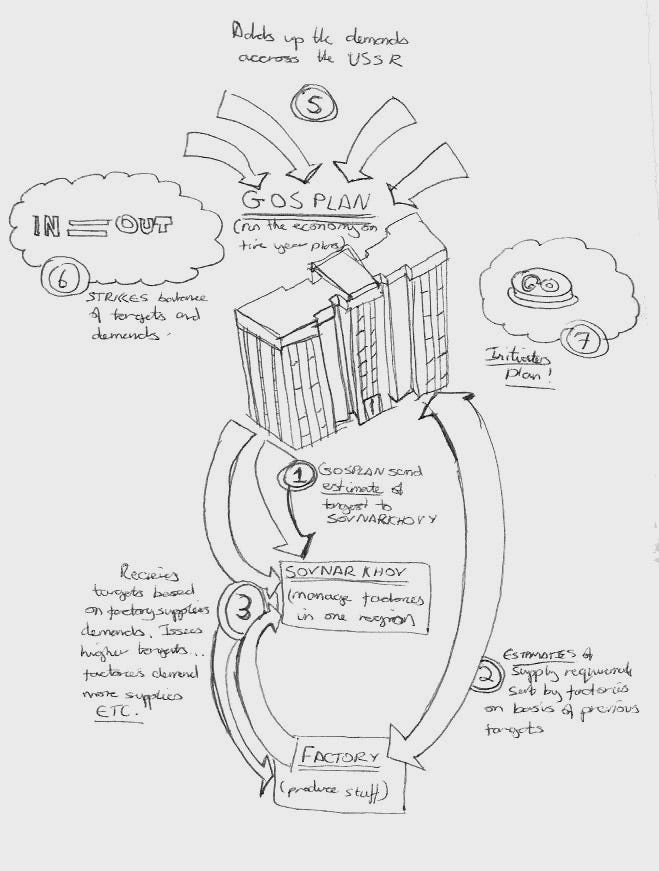 Adds up the demands
accross the USSR
5
GOSPLAN
(run the economy on
five year plans)
IN = OUT
6
STRIKES balance
of targets and
demands.
GO
7
Initiates
plan!
1
GOSPLAN send
estimate of
target to
SOVNARKHOVY
SOVNARKHOV
(manage factories
in one region)
3
Recieves
targets based
on factory suppliers
demands. Issues
higher targets..
factories demand
more supplies
ETC.
2
ESTIMATES of
Supply requirements
sent by factories
on basis of previous
targets
FACTORY
(produce stuff)